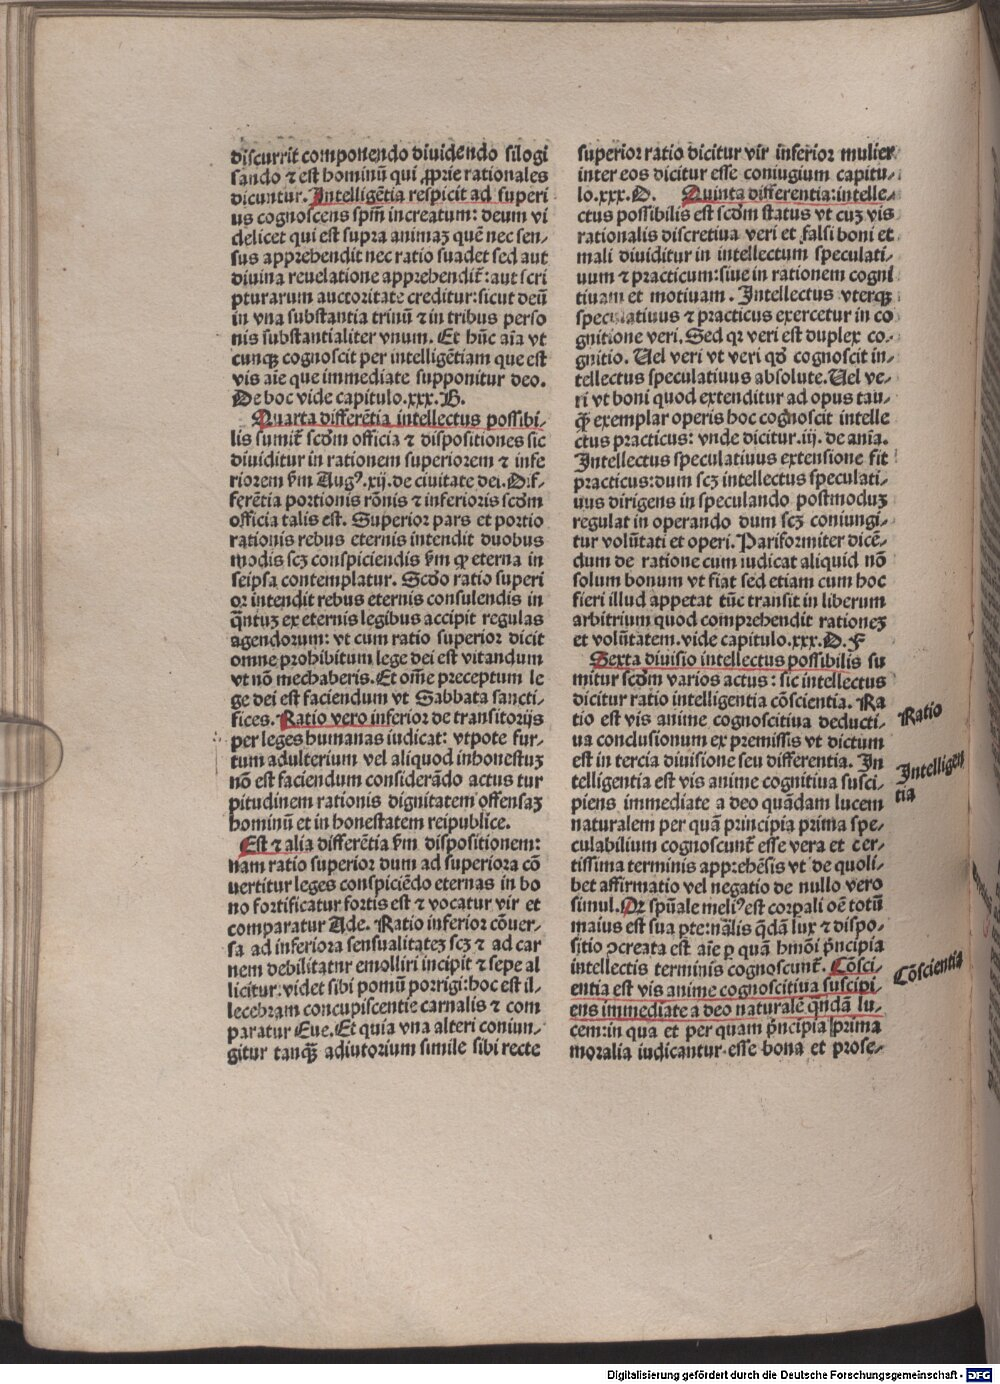 discurrit componendo diuidendo silogi
sando ⁊ est hominū qui ꝓprie rationales
dicuntur. Intelligētia respicit ad superi
us cognoscens spm̄ increatum: deum vi
delicet qui est supra animaꝫ quē nec sen⸗
sus apprehendit nec ratio suadet sed aut
diuina reuelatione apprehendit̄: aut scri
pturarum auctoritate creditur: sicut deū
in vna substantia trinū ⁊ in tribus perso
nis substantialiter vnum. Et hūc aīa vt
cunqꝫ cognoscit per intelligētiam que est
vis aīe que immediate supponitur deo.
De hoc vide capitulo.xxx. B.
Quarta differētia intellectus possibi⸗
lis sumit̄ scd̄m officia ⁊ dispositiones sic
diuiditur in rationem superiorem ⁊ infe
riorem ẜm Augꝰ.xij. de ciuitate dei. Dif⸗
ferētia portionis rōnis ⁊ inferioris scd̄m
officia talis est. Superior pars et portio
rationis rebus eternis intendit duobus
modis scꝫ conspiciendis ẜm ꝙ eterna in
seipsa contemplatur. Scd̄o ratio superi
or intendit rebus eternis consulendis in
q̄ntuꝫ ex eternis legibus accipit regulas
agendorum: vt cum ratio superior dicit
omne prohibitum lege dei est vitandum
vt nō mechaberis. Et om̄e preceptum le
ge dei est faciendum vt Sabbata sancti⸗
fices. Ratio vero inferior de transitorijs
per leges humanas iudicat: vtpote fur⸗
tum adulterium vel aliquod inhonestuꝫ
nō est faciendum considerādo actus tur
pitudinem rationis dignitatem offensaꝫ
hominū et in honestatem reipublice.
Est ⁊ alia differētia ẜm dispositionem:
nam ratio superior dum ad superiora cō
uertitur leges conspiciēdo eternas in bo
no fortificatur fortis est ⁊ vocatur vir et
comparatur Ade. Ratio inferior cōuer⸗
sa ad inferiora sensualitateꝫ scꝫ ⁊ ad car
nem debilitatnr emolliri incipit ⁊ sepe al
licitur: videt sibi pomū porrigi: hoc est il⸗
lecebram concupiscentie carnalis ⁊ com
paratur Eue. Et quia vna alteri coniun⸗
gitur tanqꝫ̄ adiutorium simile sibi recte
superior ratio dicitur vir inferior mulier
inter eos dicitur esse coniugium capitu⸗
lo.xxx. D. Quinta differentia: intelle⸗
ctus possibilis est scd̄m status vt cuꝫ vis
rationalis discretiua veri et falsi boni et
mali diuiditur in intellectum speculati⸗
uum ⁊ practicum: siue in rationem cogni
tiuam et motiuam. Intellectus vterqꝫ
speculatiuus ⁊ practicus exercetur in co
gnitione veri. Sed qꝛ veri est duplex co⸗
gnitio. Uel veri vt veri qd̄ cognoscit in⸗
tellectus speculatiuus absolute. Uel ve⸗
ri vt boni quod extenditur ad opus tan⸗
qꝫ̄ exemplar operis hoc cognoscit intelle
ctus practicus: vnde dicitur.iij. de aīa.
Intellectus speculatiuus extensione fit
practicus: dum scꝫ intellectus speculati⸗
uus dirigens in speculando postmoduꝫ
regulat in operando dum scꝫ coniungi⸗
tur volūtati et operi. Pariformiter dicē⸗
dum de ratione cum iudicat aliquid nō
solum bonum vt fiat sed etiam cum hoc
fieri illud appetat tūc transit in liberum
arbitrium quod comprehendit rationeꝫ
et volūtatem. vide capitulo.xxx. D. F
Sexta diuisio intellectus possibilis su
mitur scd̄m varios actus: sic intellectus
dicitur ratio intelligentia cōscientia. Ra
tio est vis anime cognoscitiua deducti⸗
ua conclusionum ex premissis vt dictum
est in tercia diuisione seu differentia. In
telligentia est vis anime cognitiua susci⸗
piens immediate a deo quādam lucem
naturalem per quā principia prima spe⸗
culabilium cognoscunt̄ esse vera et cer⸗
tissima terminis apprehēsis vt de quoli⸗
bet affirmatio vel negatio de nullo vero
simul. Qꝛ spūale meliꝰ est corpali oē totū
maius est sua pte: nālis q̄dā lux ⁊ dispo⸗
sitio ꝯcreata est aīe ꝑ quā hmōi pn̄cipia
intellectis terminis cognoscunt̄. Cōsci⸗
entia est vis anime cognoscitiua suscipi⸗
ens immediate a deo naturalē qn̄dā lu⸗
cem: in qua et per quam pn̄cipia prima
moralia iudicantur esse bona et prose⸗
Ratio
Intelligen
tia
Cōscientia
Digitalisierung gefördert durch die Deutsche Forschungsgemeinschaft - DFG